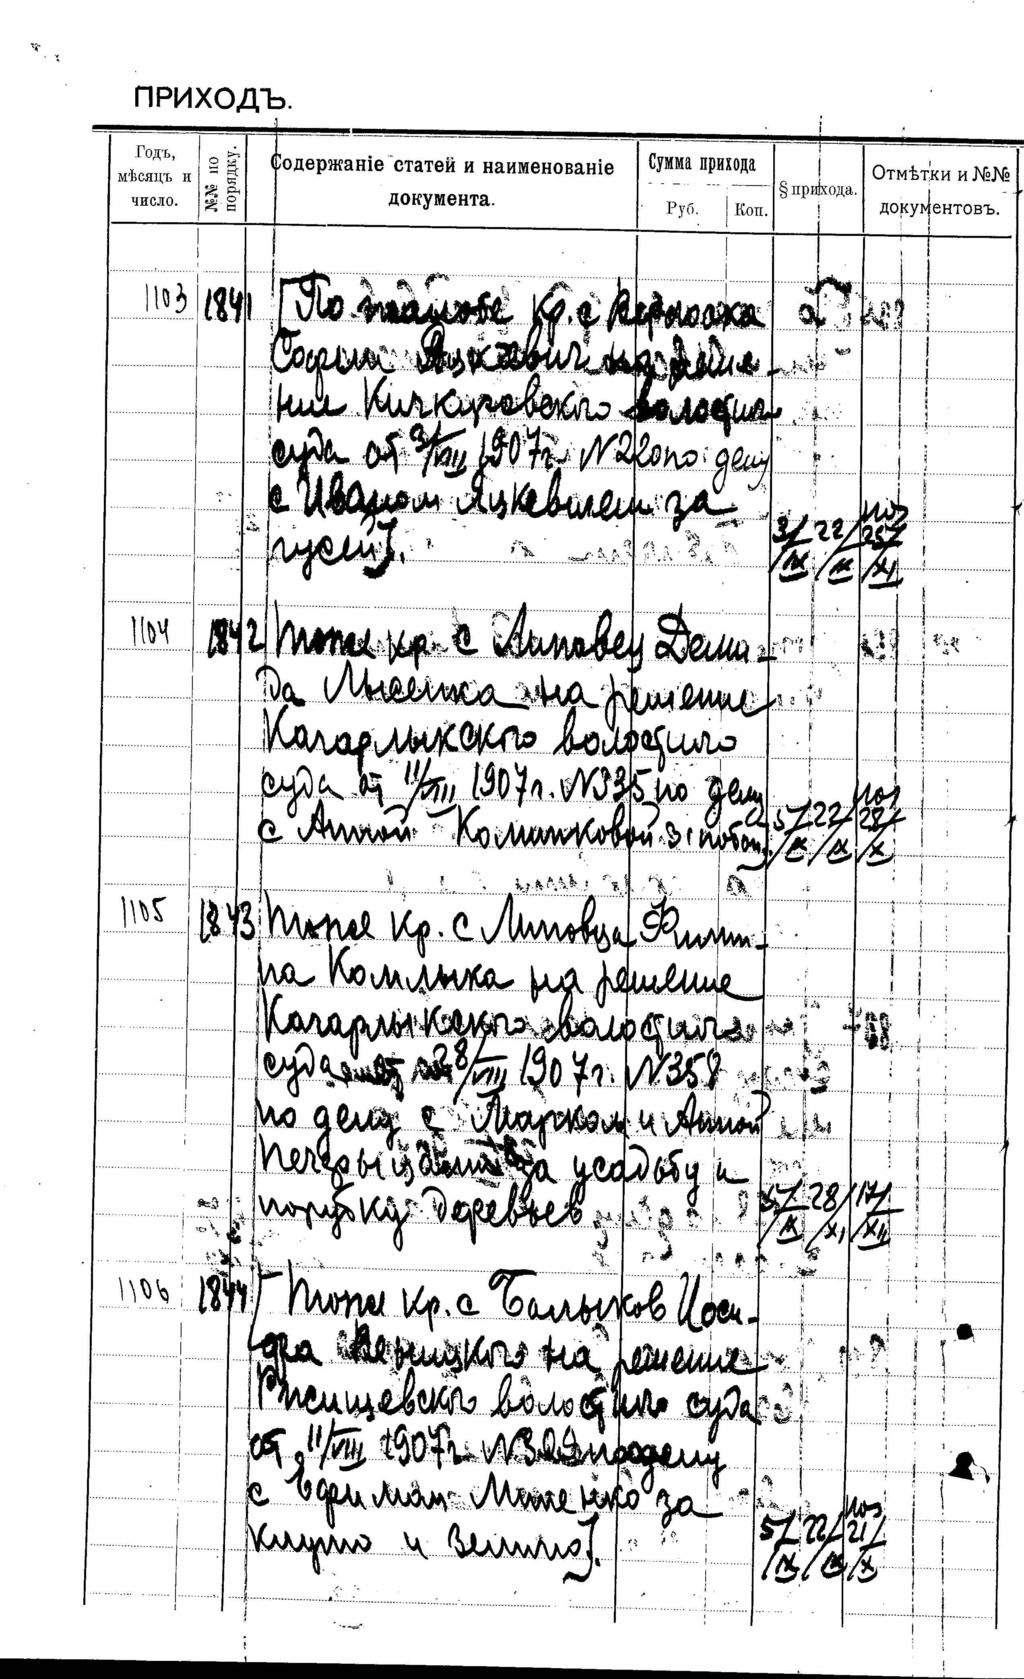 ПРИХОДЪ.
Годъ, мѣсяцъ и число.
№№ по порядку.
Содержаніе статей и наименованіе документа.
Сумма прихода
Руб.
Коп.
§ прихода.
Отмѣтки и №№ документовъ.
1103 1841 [По жалобе кр. с
Софьи Яцкевич на реше-
ние Кичкировского волостного
суда от 3/VIII 1907г. N220 по делу
с Иваном Яцкевичем за
гусей]. 3/IX 22/IX 25/XI
1104 1842 тоже кр. с Липовец Деми-
да Лысенка на решение
Кагарлыкского волостного
суда от 11/VIII 1907г. N335 по делу
с Анной за побои] 5/IX 22/IX 28/X
1105 1843 тоже кр. с Липовца Филип-
па на решение
Кагарлыкского волостного
суда от 28/VIII 1907г. N358
по делу с Марком и Анной
за усадьбу и
порубку деревьев 5/IX 28/XI 17/XII
1106 1844 [тоже кр. с Балыков Иоси-
фа на решение
Ржищевского волостного суда
от 11/VIII 1907г. по делу
с Ефимом за
клуню и землю]. 5/IX 22/IX 21/X